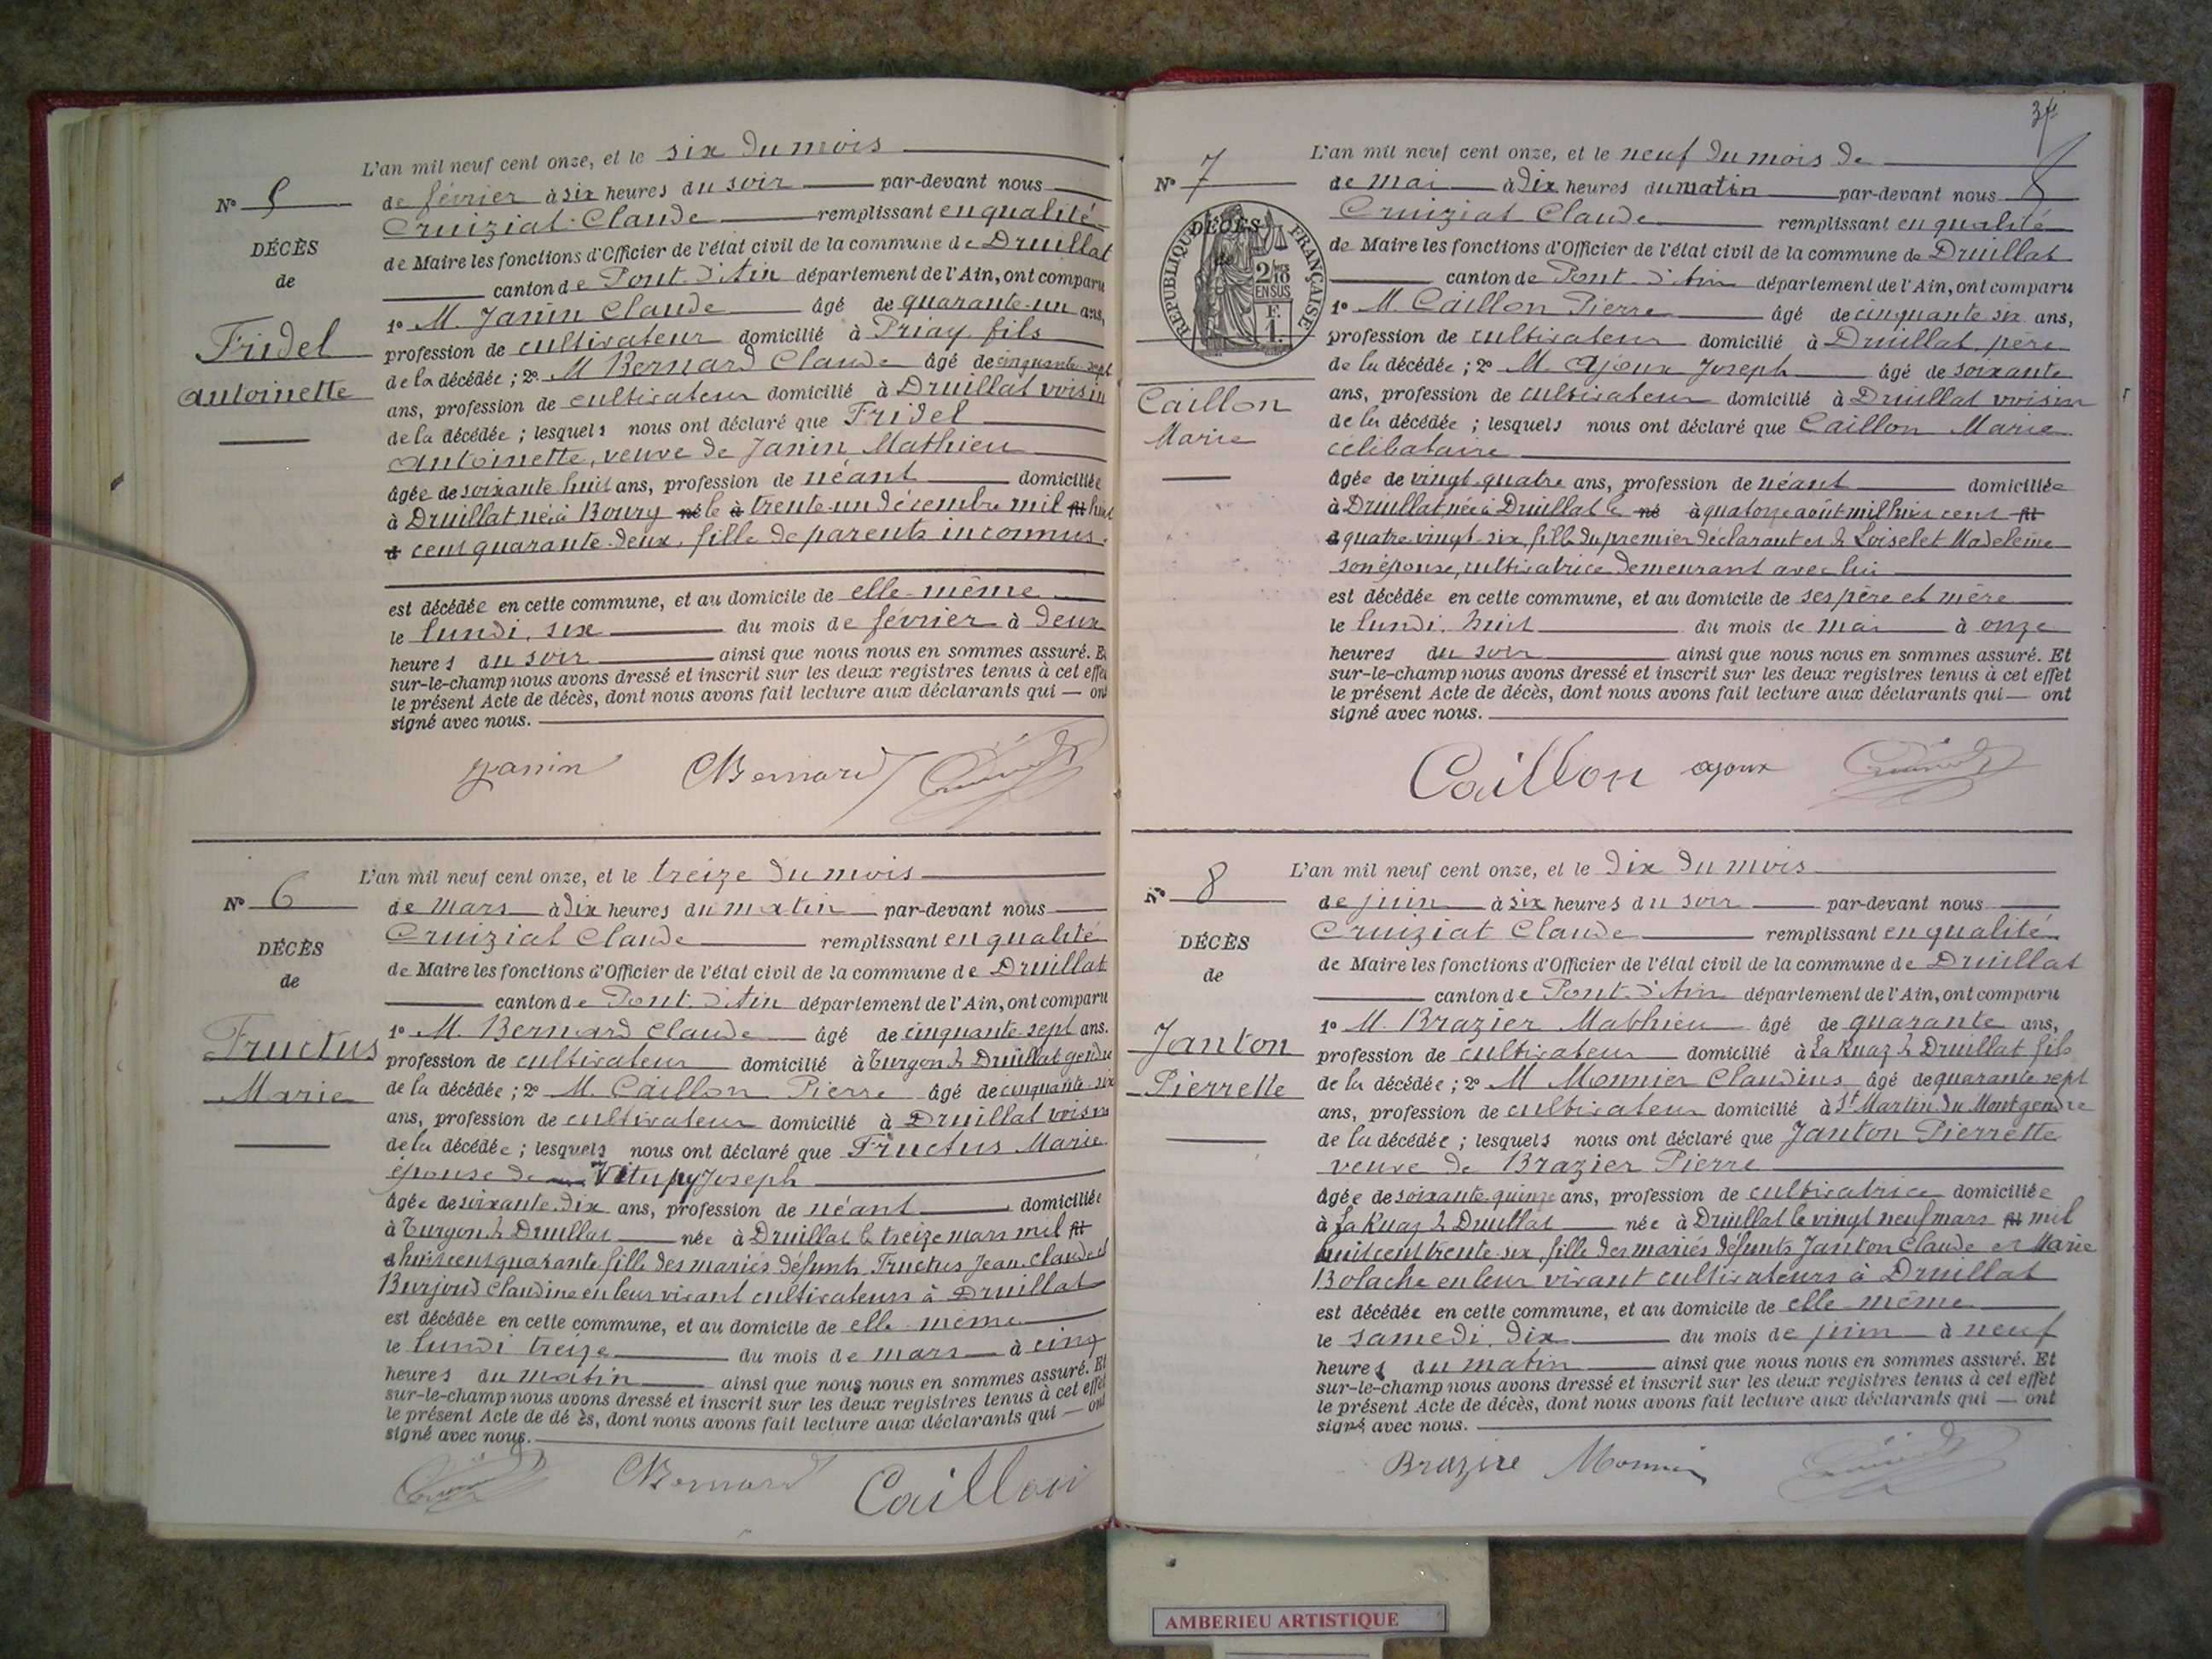 L'an mil neuf cent onze, et le six du mois
N° 5 de février à six heures du soir par-devant nous
Cruiziat Claude remplissant en qualité
DÉCÈS
de
Fridel
Antoinette
de Maire les fonctions d'Officier de l'état civil de la commune de Druillat
canton de Pont-d'Ain département de l'Ain, ont comparu
1° M. Janin Claude âgé de quarante-un ans,
profession de cultivateur domicilié à Priay fils
de la décédée ; 2° M Bernard Claude âgé de cinquante sept
ans, profession de cultivateur domicilié à Druillat voisin
de la décédée ; lesquels nous ont déclaré que Fridel
Antoinette, veuve de Janin Mathieu
âgée de soixante huit ans, profession de néant domiciliée
à Druillat née à Bourg né le à trente-un décembre mil fil huit
à cent quarante-deux, fille de parents inconnus.
est décédée en cette commune, et au domicile de elle-même
le lundi, six du mois de février à deux
heures du soir ainsi que nous nous en sommes assuré. Et
sur-le-champ nous avons dressé et inscrit sur les deux registres tenus à cet effet
le présent Acte de décès, dont nous avons fait lecture aux déclarants qui — ont
signé avec nous.
Janin CBernard
L'an mil neuf cent onze, et le treize du mois
N° 6 de mars à dix heures du matin par-devant nous
Cruiziat Claude remplissant en qualité
DÉCÈS
de
Fructus
Marie
de Maire les fonctions d'Officier de l'état civil de la commune de Druillat
canton de Pont-d'Ain département de l'Ain, ont comparu
1° M. Bernard Claude âgé de cinquante-sept ans.
profession de cultivateur domicilié à Turgon de Druillat gendre
de la décédée ; 2° M. Caillon Pierre âgé de cinquante-six
ans, profession de cultivateur domicilié à Druillat voisin
de la décédée ; lesquels nous ont déclaré que Fructus Marie
épouse de Vitupy Joseph
âgée de soixante-dix ans, profession de néant domiciliée
à Turgon de Druillat née à Druillat le treize mars mil fil
à huit cent quarante fille des mariés défunts Fructus Jean-Claude et
Burjoud Claudine en leur vivant cultivateurs à Druillat
est décédée en cette commune, et au domicile de elle-même
le lundi treize du mois de mars à cinq
heures du matin ainsi que nous nous en sommes assuré. Et
sur-le-champ nous avons dressé et inscrit sur les deux registres tenus à cet effet
le présent Acte de dé ès, dont nous avons fait lecture aux déclarants qui — ont
signé avec nous.
CBernard Caillon
37
L'an mil neuf cent onze, et le neuf du mois de
N° 7 de mai à dix heures du matin par-devant nous
Cruiziat Claude remplissant en qualité
DÉCÈS
de
RÉPUBLIQUE FRANÇAISE
2/10
EN SUS
F.
1.
Caillon
Marie
de Maire les fonctions d'Officier de l'état civil de la commune de Druillat
canton de Pont-d'Ain département de l'Ain, ont comparu
1° M. Caillon Pierre âgé de cinquante six ans,
profession de cultivateur domicilié à Druillat, père
de la décédée ; 2° M. Ajoux Joseph âgé de soixante
ans, profession de cultivateur domicilié à Druillat voisin
de la décédée ; lesquels nous ont déclaré que Caillon Marie
célibataire
âgée de vingt-quatre ans, profession de néant domiciliée
à Druillat, née à Druillat le né à quatorze août mil huit cent fil
à quatre-vingt-six, fille du premier déclarant et de Loiselet Madeleine
son épouse, cultivatrice demeurant avec lui
est décédée en cette commune, et au domicile de ses père et mère
le lundi, huit du mois de mai à onze
heures du soir ainsi que nous nous en sommes assuré. Et
sur-le-champ nous avons dressé et inscrit sur les deux registres tenus à cet effet
le présent Acte de décès, dont nous avons fait lecture aux déclarants qui — ont
signé avec nous.
Caillon ajoux
L'an mil neuf cent onze, et le dix du mois
N° 8 de juin à six heures du soir par-devant nous
Cruiziat Claude remplissant en qualité
DÉCÈS
de
Janton
Pierrette
de Maire les fonctions d'Officier de l'état civil de la commune de Druillat
canton de Pont-d'Ain département de l'Ain, ont comparu
1° M. Brazier Mathieu âgé de quarante ans,
profession de cultivateur domicilié à La Ruaz de Druillat fils
de la décédée ; 2° M Monnier Claudius âgé de quarante sept
ans, profession de cultivateur domicilié à St Martin du Mont gendre
de la décédée ; lesquels nous ont déclaré que Janton Pierrette
veuve de Brazier Pierre
âgée de soixante-quinze ans, profession de cultivatrice domiciliée
à La Ruaz de Druillat née à Druillat le vingt neuf mars fil mil
huit cent trente-six, fille des mariés défunts Janton Claude et Marie
Bolache en leur vivant cultivateurs à Druillat
est décédée en cette commune, et au domicile de elle-même
le samedi, dix du mois de juin à neuf
heures du matin ainsi que nous nous en sommes assuré. Et
sur-le-champ nous avons dressé et inscrit sur les deux registres tenus à cet effet
le présent Acte de décès, dont nous avons fait lecture aux déclarants qui — ont
signé avec nous.
Brazire Monnier
AMBERIEU ARTISTIQUE